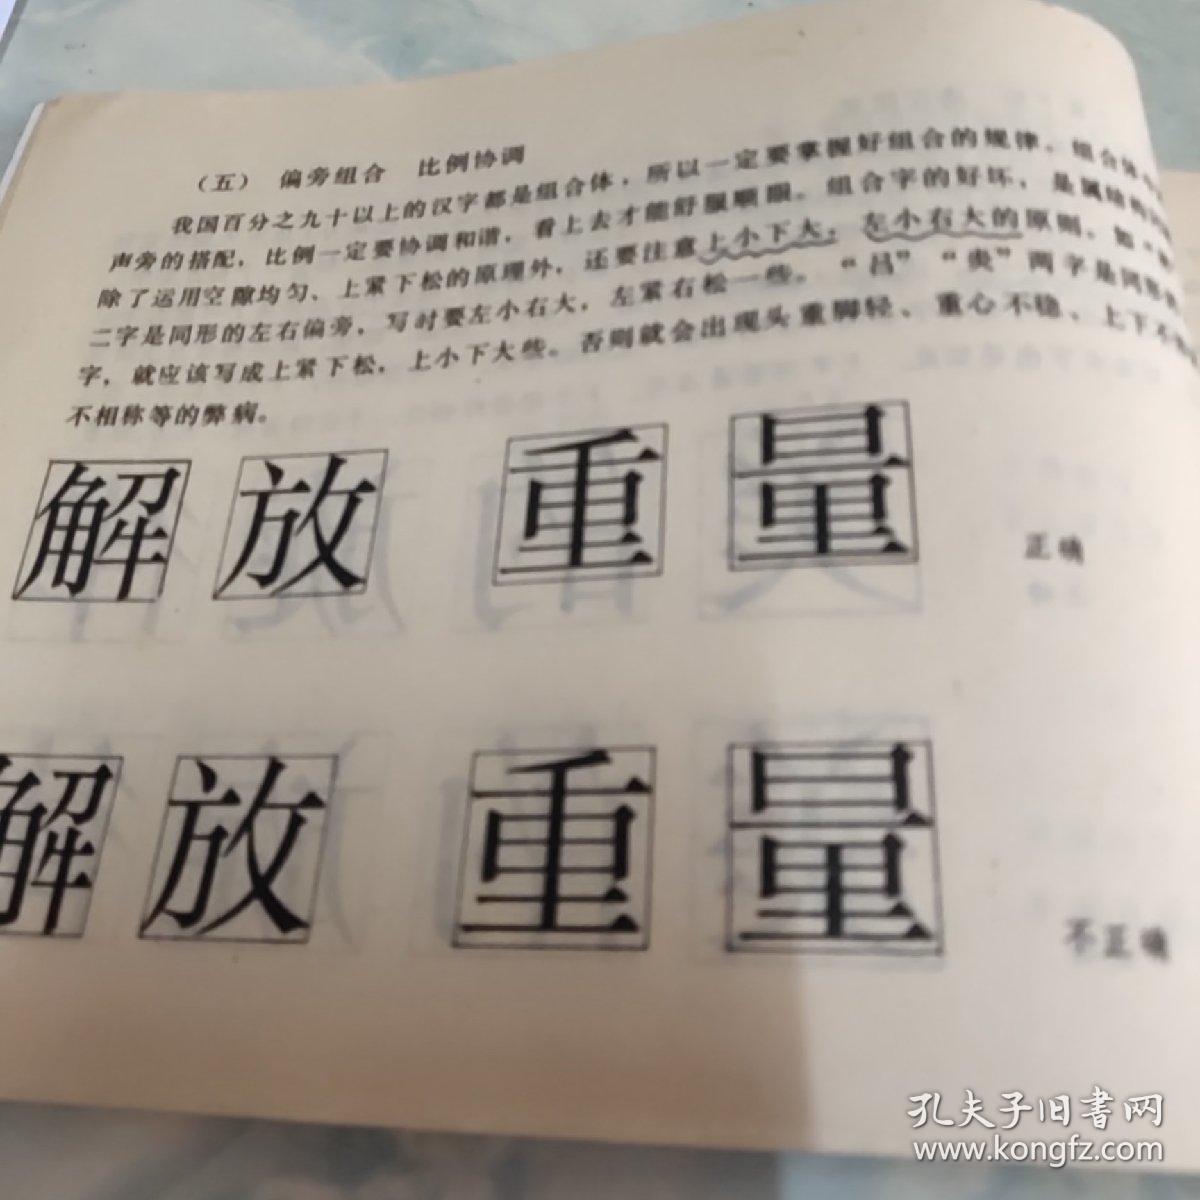 （五） 偏旁组合 比例协调
我国百分之九十以上的汉字都是组合体，所以一定要掌握好组合的规律。组合体
声旁的搭配，比例一定要协调和谐，看上去才能舒服顺眼。组合字的好坏，是属结构
除了运用空隙均匀、上紧下松的原理外，还要注意上小下大，左小右大的原则，如“
二字是同形的左右偏旁，写时要左小右大，左紧右松一些。“吕”“炎”两字是同形
字，就应该写成上紧下松，上小下大些。否则就会出现头重脚轻、重心不稳、上下不
不相称等的弊病。
解放重量 正确
解放重量 不正确
孔夫子旧书网
www.kongfz.com